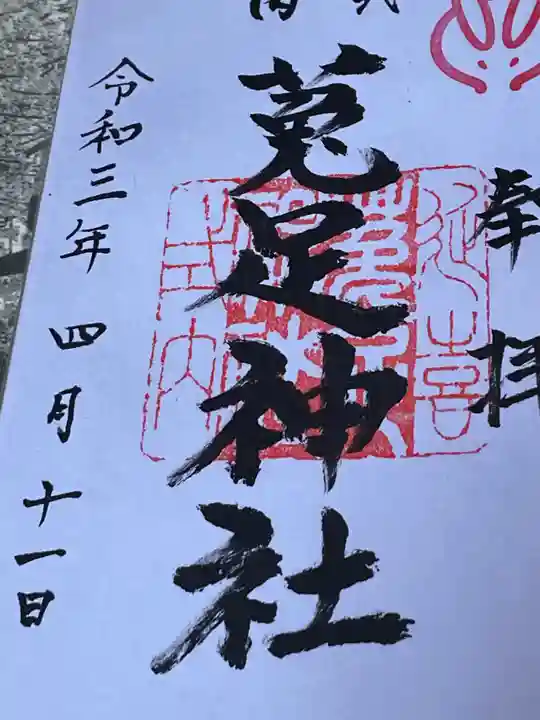 奉拝
菟足神社
延喜
式内
令和三年四月十一日